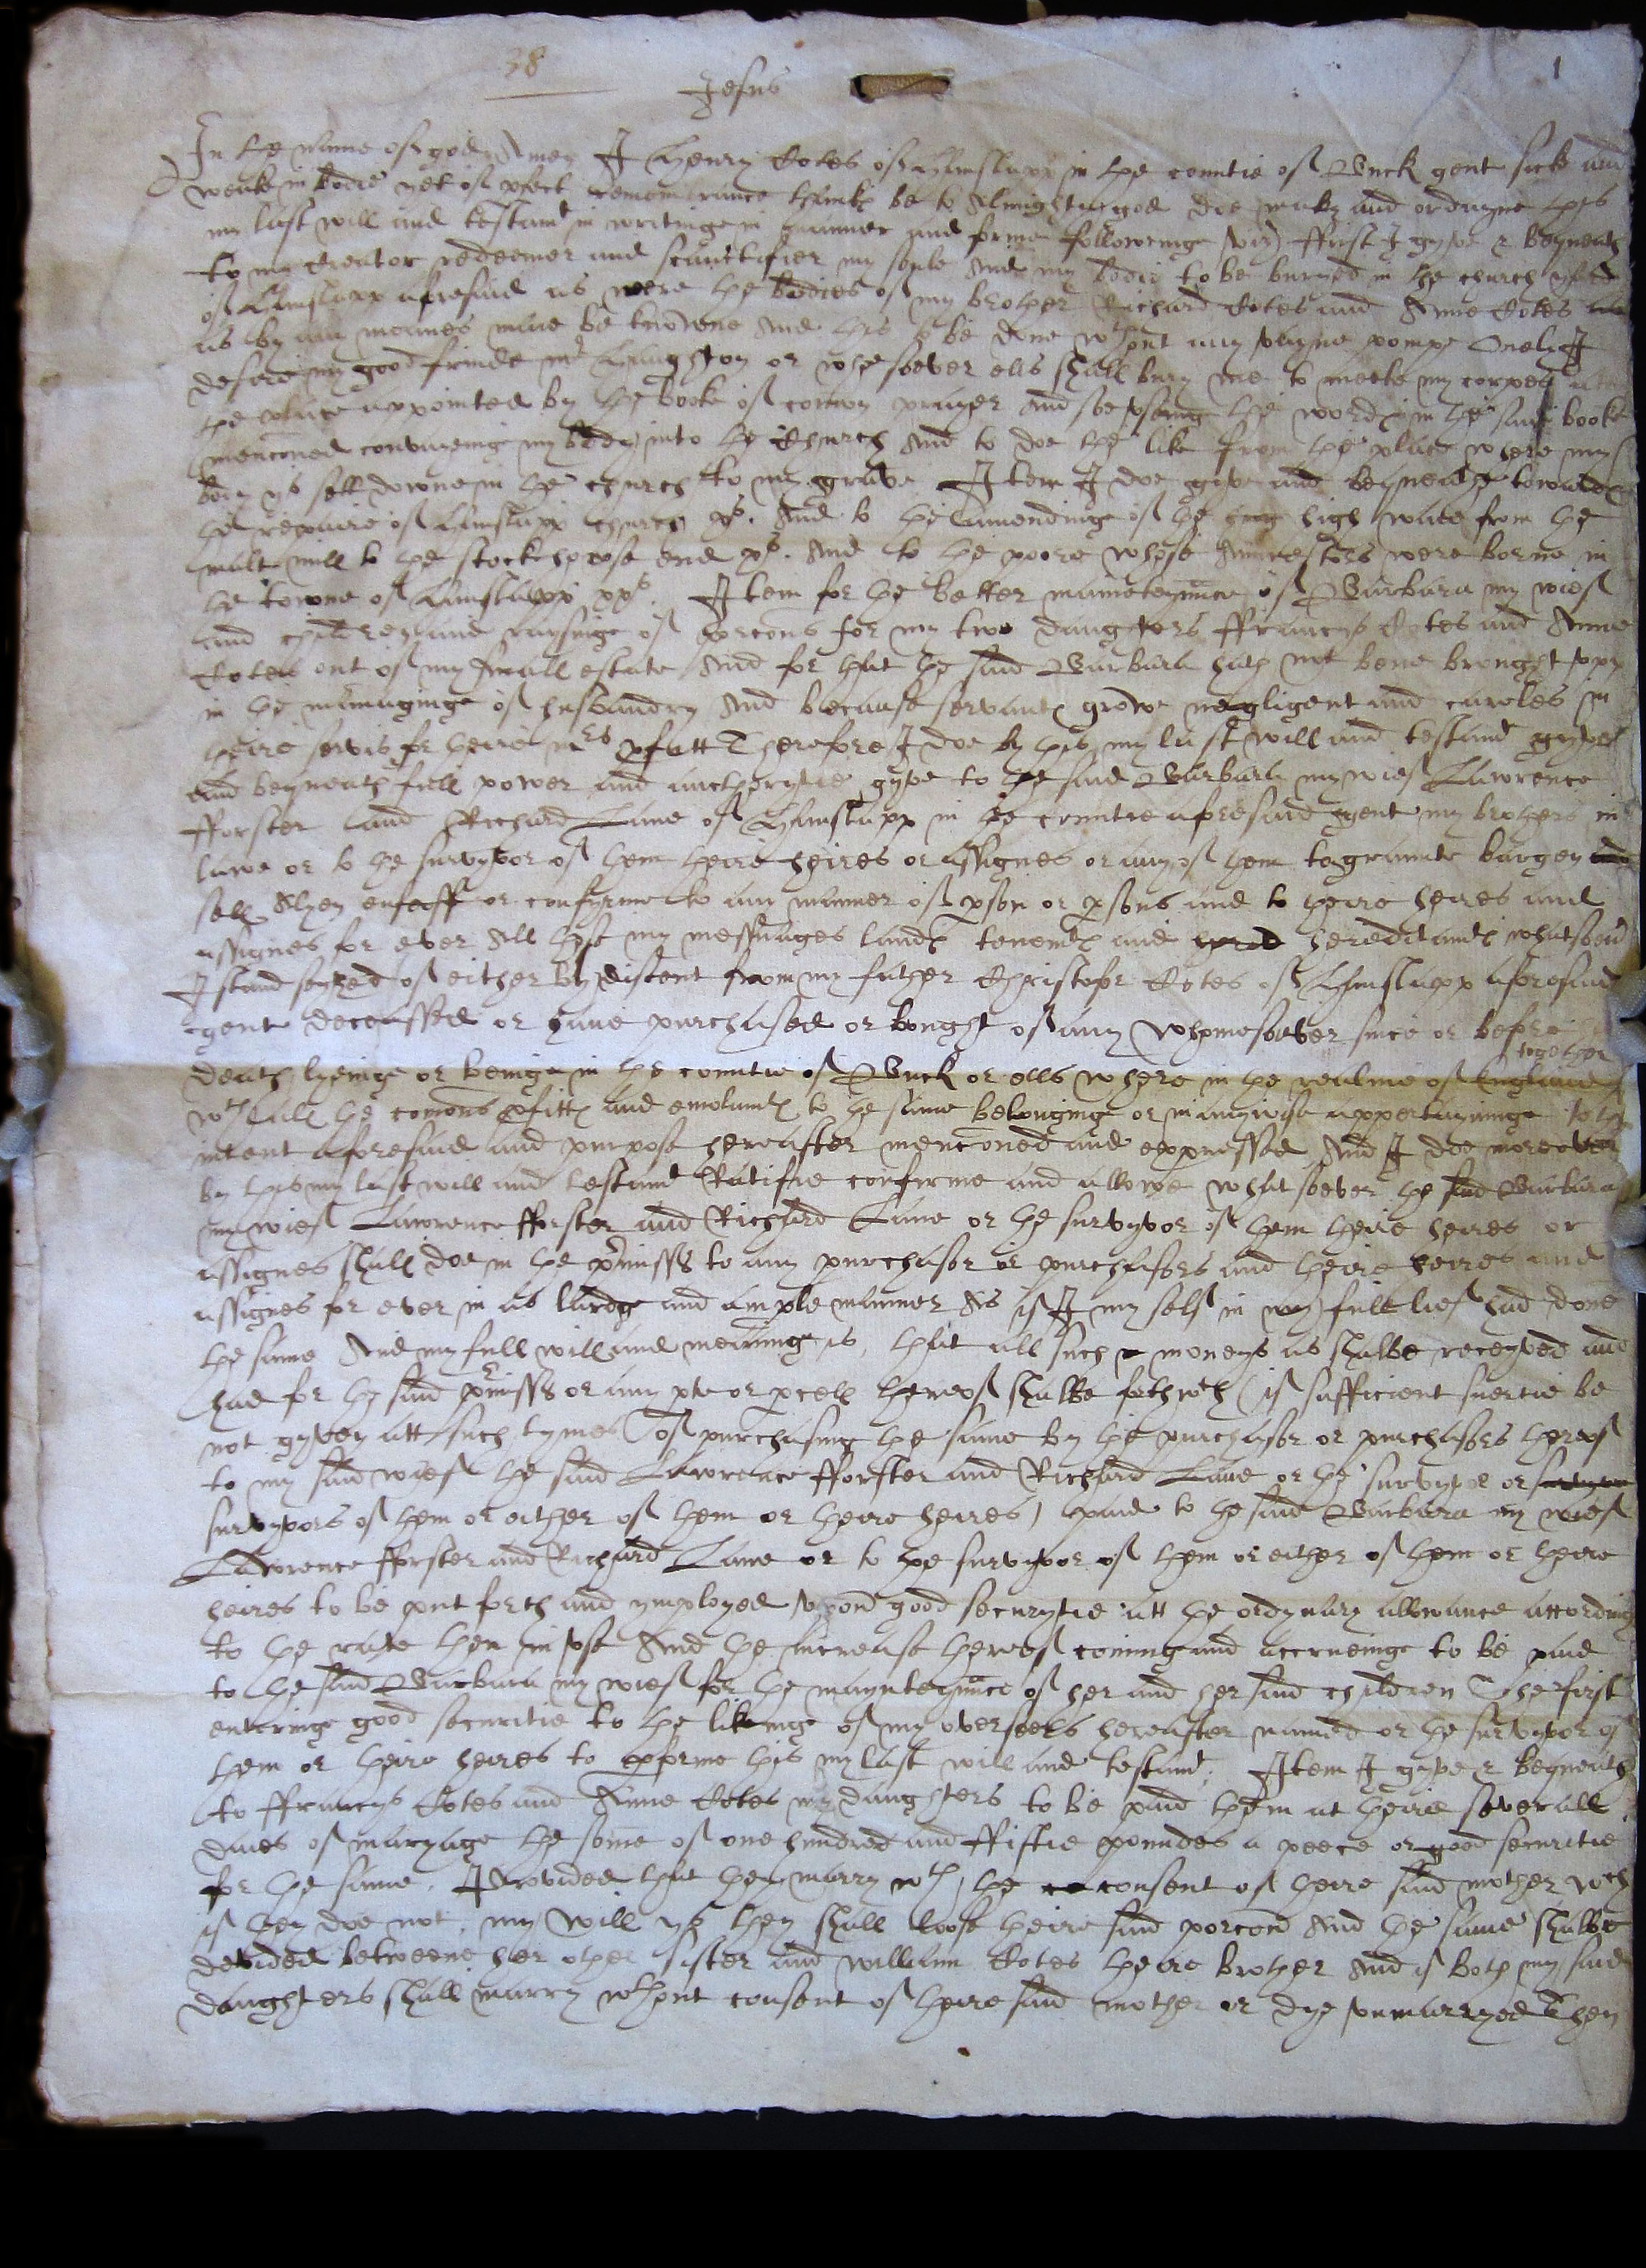 38
1
Jesus
In the name of god Amen I Henry Cotes of Hanslapp in the countie of Buck gent sick and
weake in bodie yet of pfect remembrance thanks be to Almightie god doe make and ordayne this
my last will and testamt in writinge in manner and forme followeinge viz) ffirst I gyve & bequeath
to my Creator redeemer and sanctifier my soule And my bodie to be buryed in the church
of Hanslapp aforesaid as neere the bodies of my brother Richard Cotes and Anne Cotes
as by any meanes maie be knowne And this to be done wthout any vayne pompe Onelie I
desire my good frinde mr Laughton or whosoever ells shall bury me to meete my corpes att
the place appointed by the booke of comon prayer and soe vseing the words in the said booke
mencioned conveyeinge my body into the Church And to doe the like from the place where my
body ys sett downe in the church to my grave Item I doe gyve and bequeathe towards
the repaire of Hanslapp church xs. And to the amendinge of the high waie from the
malt mill to the stockhowse end xs. And to the poore whose Auncestors were borne in
the towne of Hanslapp xxs. Item for the better mainteynance of Barbara my wief
and children and raysinge of porcons for my two daughters ffrancys Cotes and Anne
Cotes out of my small estate And for that the said Barbara hath not bene brought vpp
in the managinge of husbandry And because servants growe negligent and careles in
theire servis for theire mrs pfitt Therefore I doe by this my last will and testamt gyve
and bequeath full power and aucthorytie gyve to the said Barbara my wief Lawrence
fforster and Richard Lane of Hanslapp in the countie aforesaid gent my brothers in
lawe or to the survyvor of them theire heires or assignes or any of them to graunte bargen
sell Alyen enfeoff or confyrme to any manner of pson or psons and to theire heires and
assignes for ever All those my messuages lands tenemts and hered hereditamts whatsoevr
I stand seyzed of either by discent from my father Christofor Cotes of Hanslapp aforesaid
gent deceassed or have purchased or bought of any whomesoever since or before
together
death lyeinge or beinge in the countie of Buck or ells where in the realme of England
wth all the comons pfitts and emolumts to the same belonging or in anywise appertayninge to the
intent aforesaid and purpose hereafter mencioned and expressed And I doe moreover
by this my last will and testamt Ratifie confirme and allowe whatsoever the said Barbara
my wief Lawrence fforster and Richard Lane or the survyvor of them theire heires or
assignes shall doe in the prmisses to any purchasor or purchasors and theire heires and
assignes for ever in as lardge and ample manner As if I my self in my full lief had done
the same And my full will and meaninge is, that all such moneys as shalbe receyved and
had for the said prmisses or any pte or pcell thereof shalbe forthwth (if sufficient suertie be
not gyven att such tymes of purchasing the same by the purchasor or purchasors thereof
to my said wief the said Lawrence fforster and Richard Lane or the survyvor or
survyvors of them or either of them or theire heires) paid to the said Barbara my wief
Lawrence fforster and Richard Lane or to the survyvor of them or either of them or theire
heires to be put forth and ymployed vpon good securytie att the ordynary allowance accordinge
to the rate then in vse And the increase thereof coming and accrueinge to be paid
to the said Barbara my wief for the maynteynnce of her and her said children She first
enteringe good securitie to the likeinge of my overseers hereafter named or the survyvor of
them or theire heires to pforme this my last will and testamt. Item I gyve & bequeath
to ffrancys Cotes and Anne Cotes my daughters to be paid them at theire severall
daies of maryage the some of one hundred and ffiftie poundes a peece or good securitie
for the same. Provided that they marry wth the consent of theire said mother wch
if they doe not, my will ys they shall loose theire said porcon And the same shalbe
devided betweene her other sister and william Cotes theire brother And if both my said
daughters shall marry wthout consent of theire said mother or dye vnmarryed Then